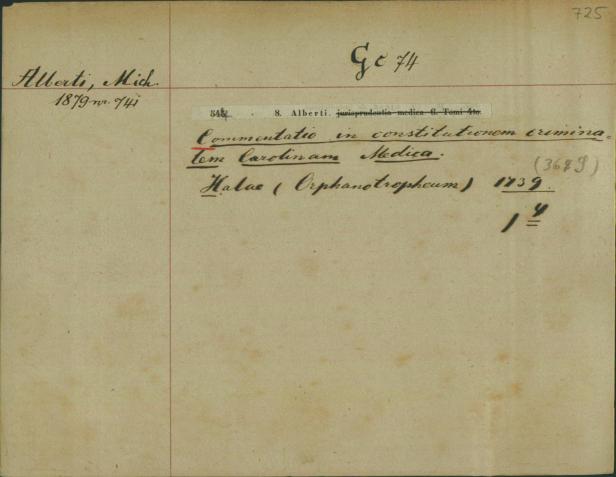 725
Gc 74
Alberti, Mich.
1879 nr. 741
S. Alberti. jurisprudentia medica G. Tomi 4to.
Commentatio in constitutionem crimina=
lem Carolinam Medica.
(3689)
Halae (Orphanotropheum) 1739.
1 4